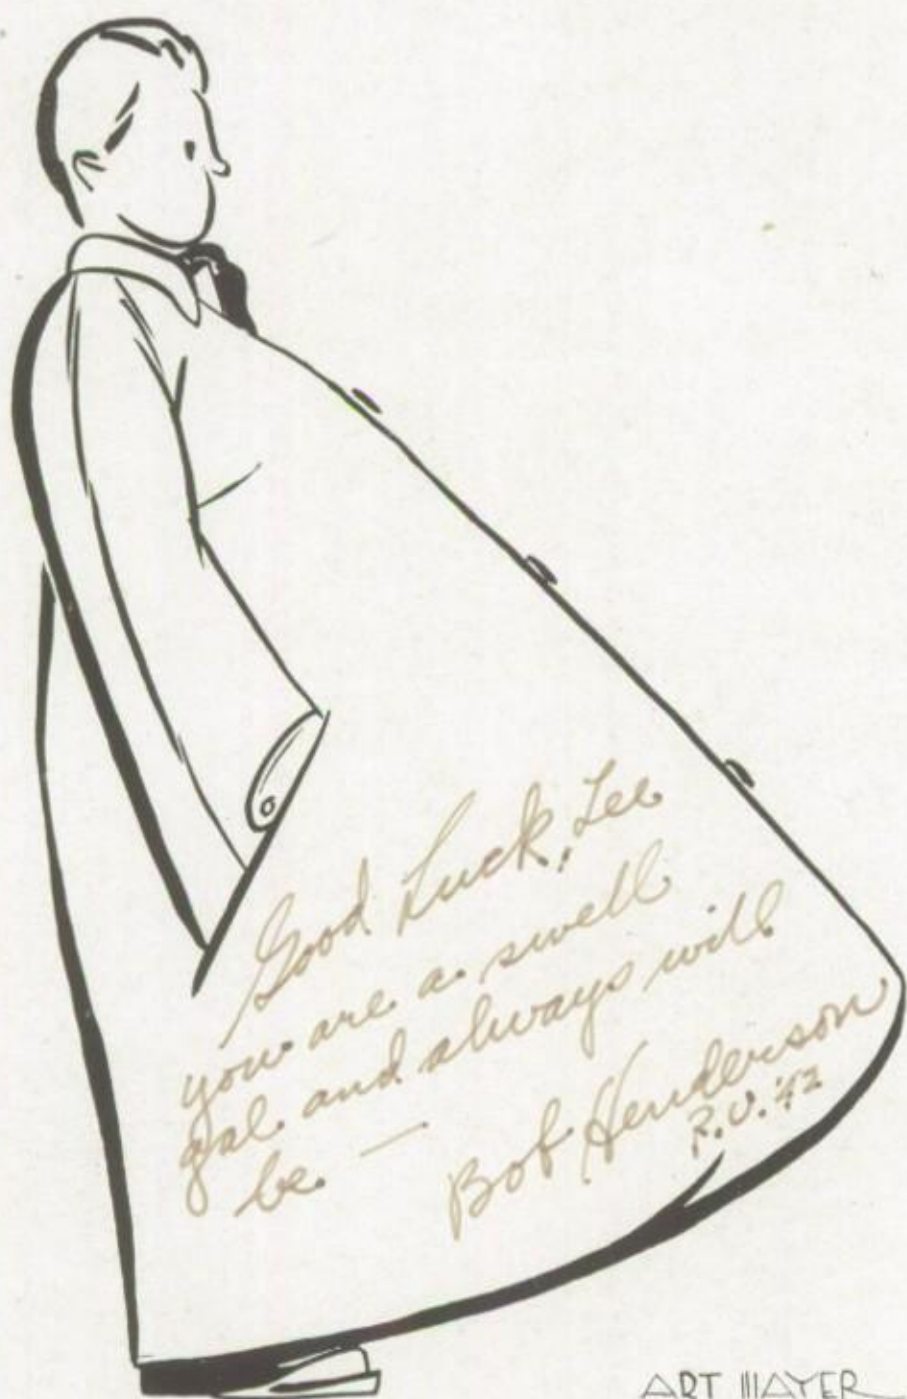 Good Luck, Lee
you are a swell
gal and always will
be —
Bob Henderson
R.U. '42
ART MAYER